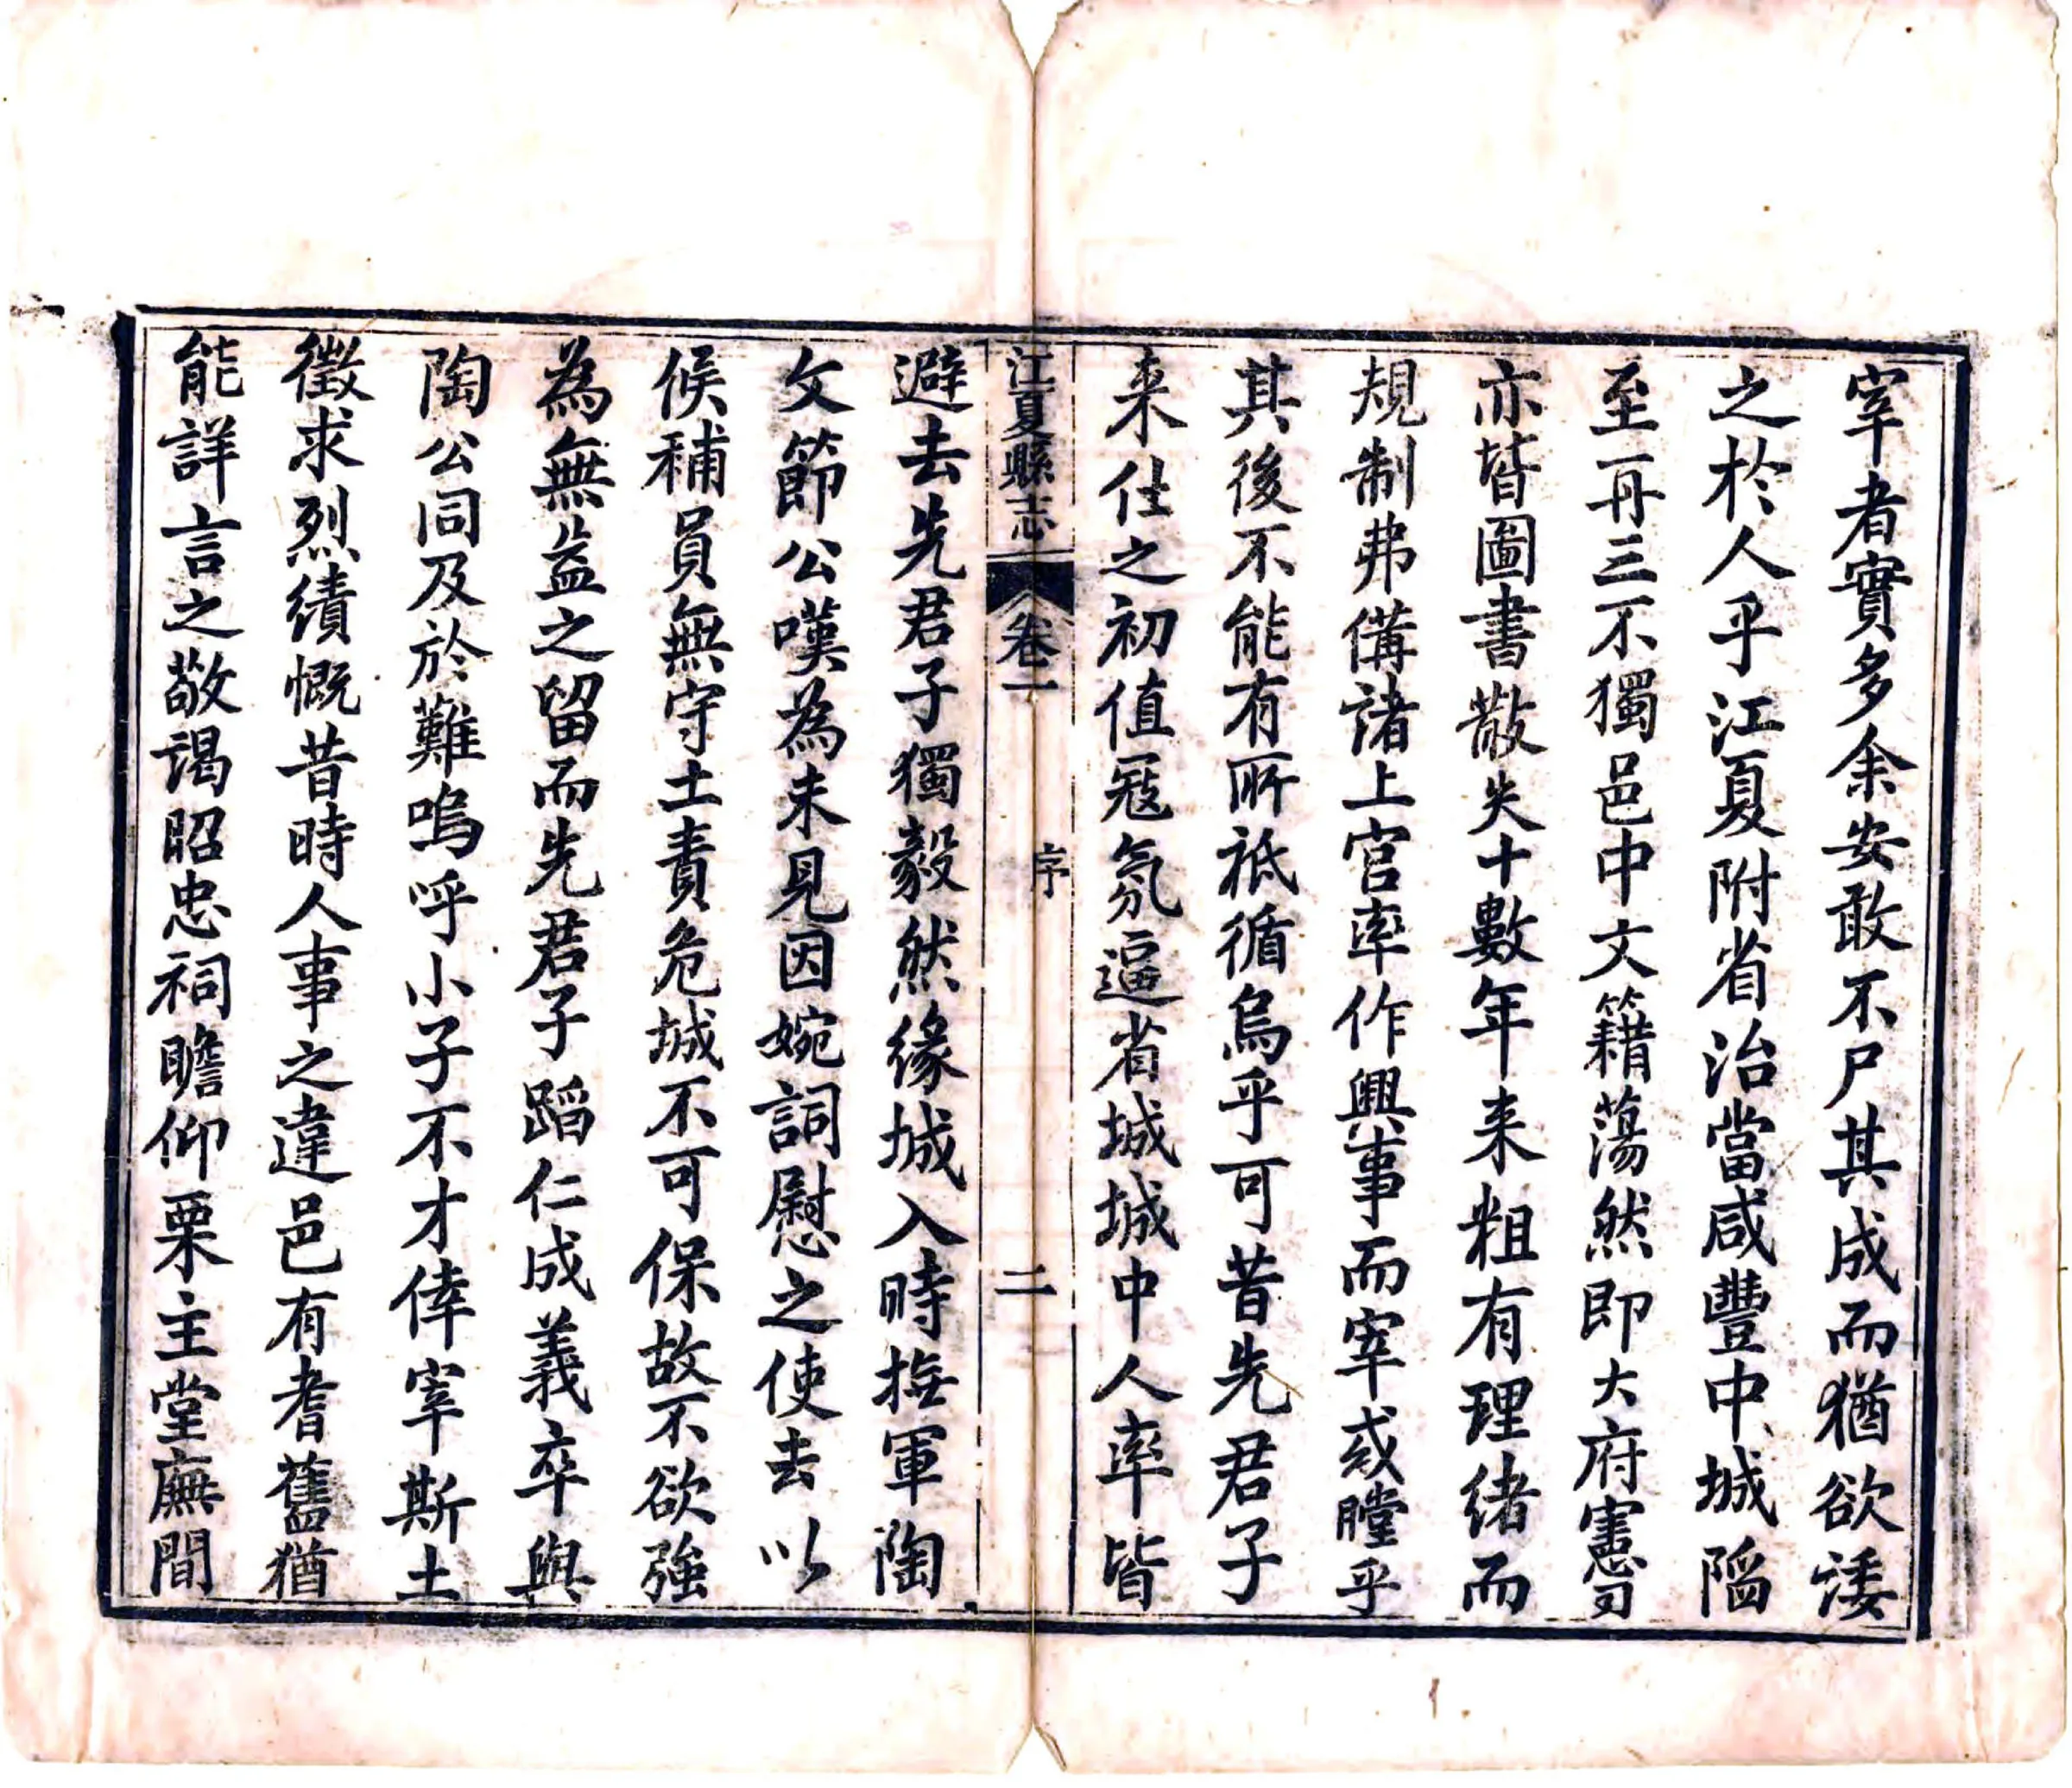 宰者實多余安敢不尸其成而猶欲諉
之於人乎江夏附省治當咸豐中城陷
至再三不獨邑中文籍蕩然即大府憲司
亦皆圖書散失十數年来粗有理緒而
規制弗備諸上官率作興事而宰或瞠乎
其後不能有所祗循烏乎可昔先君子
来仕之初值冦氛逼省城城中人率皆
江夏縣志
卷一
序
二
避去先君子獨毅然緣城入時撫軍陶
文節公嘆為未見因婉詞慰之使去以
候補員無守土責危城不可保故不欲強
為無益之留而先君子蹈仁成義卒與
陶公同及於難嗚呼小子不才倖宰斯土
徵求烈績慨昔時人事之違邑有耆舊猶
能詳言之敬謁昭忠祠瞻仰栗主堂廡間